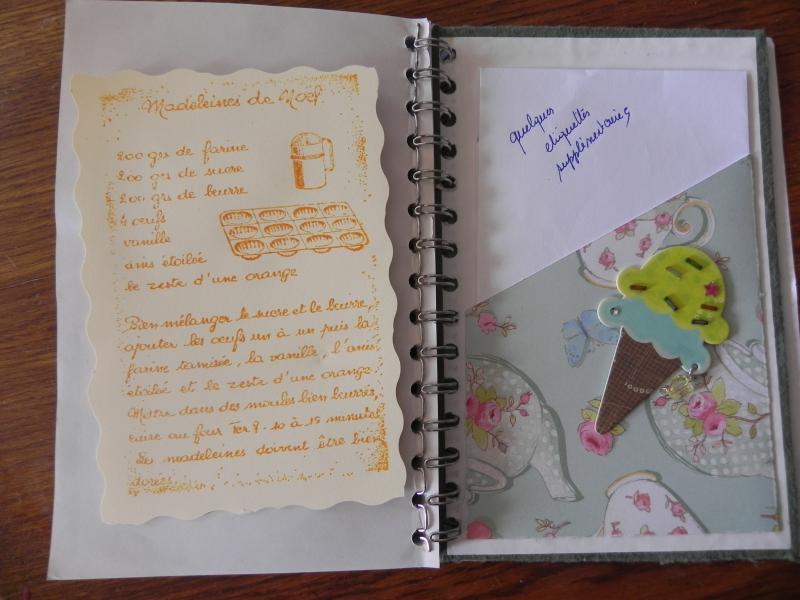 Madeleines de Noël
200 grs de farine
200 grs de sucre
200 grs de beurre
4 oeufs
vanille
anis étoilée
le zeste d'une orange
Bien mélanger le sucre et le beurre,
ajouter les oeufs un à un puis la
farine tamisée, la vanille, l'anis
étoilée et le zeste d'une orange.
Mettre dans des moules bien beurrés,
cuire au four Ter 7. 10 à 15 minutes
Les madeleines doivent être bien
dorées.
quelques
etiquettes
supplémentaires